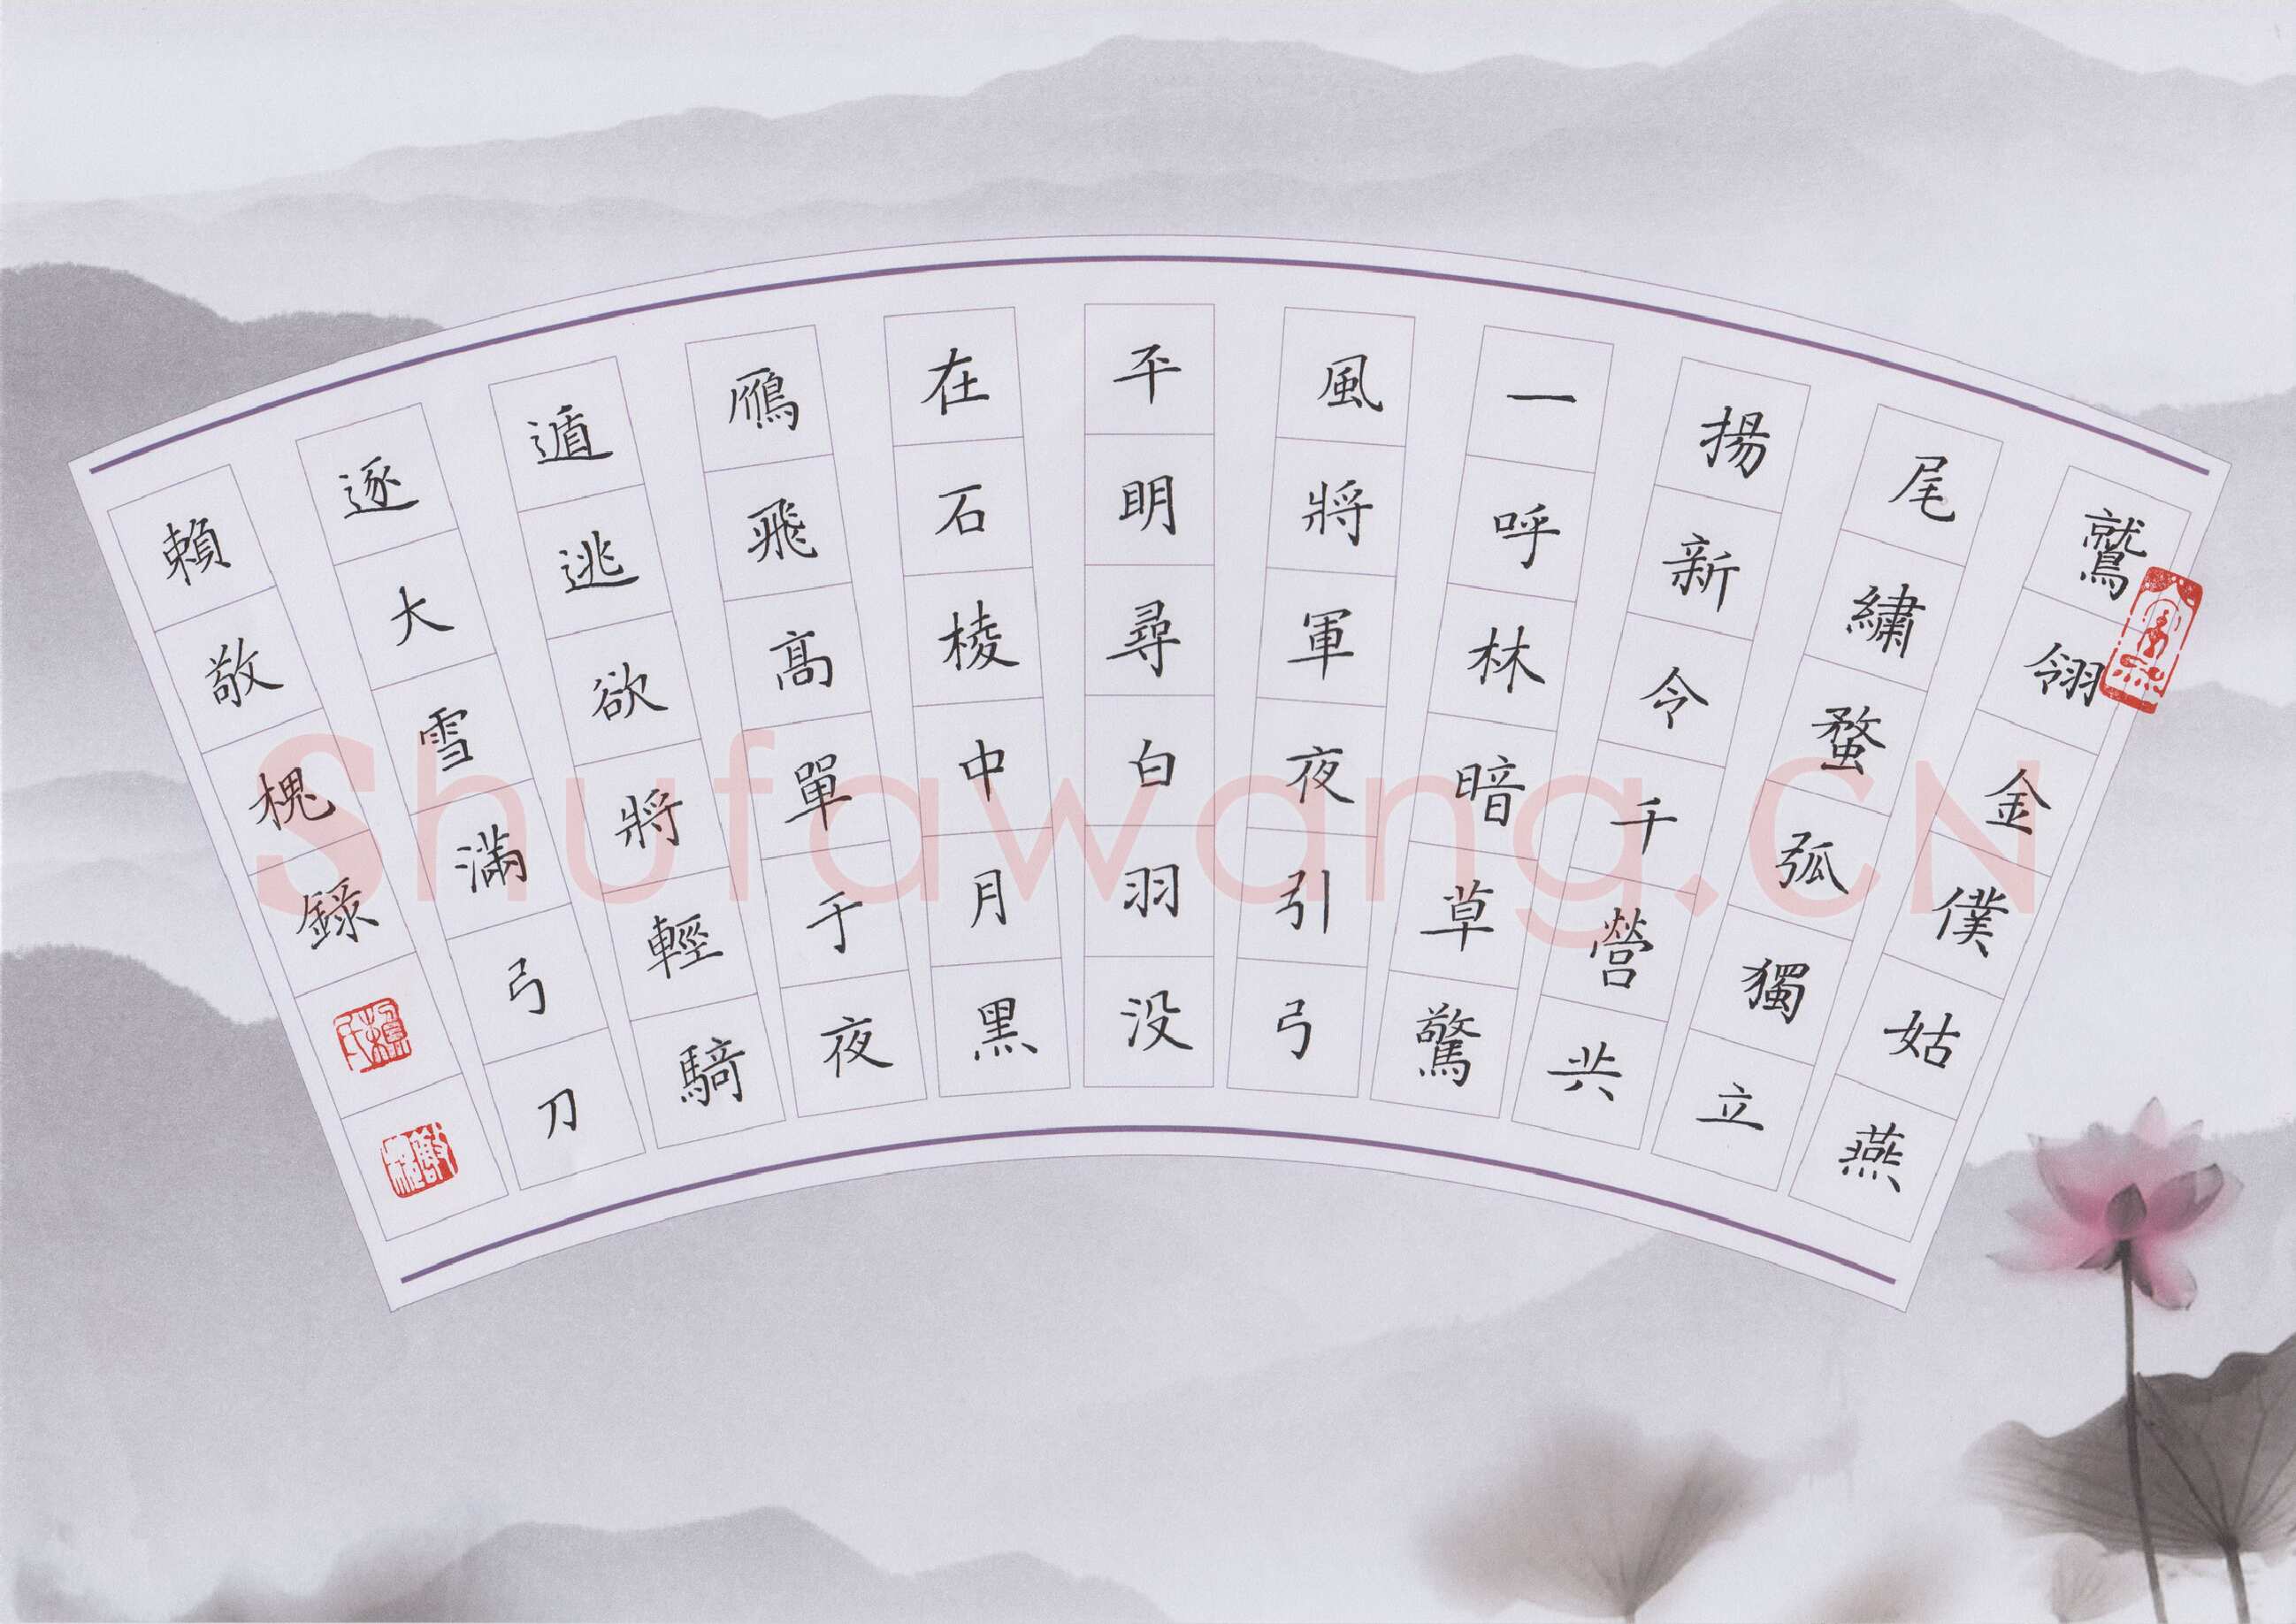 鷲翎金僕姑燕
尾繡蝥弧獨立
揚新令千營共
一呼林暗草驚
風將軍夜引弓
平明尋白羽没
在石棱中月黑
鴈飛高單于夜
遁逃欲將輕騎
逐大雪滿弓刀
賴敬槐錄
Shufawang.CN